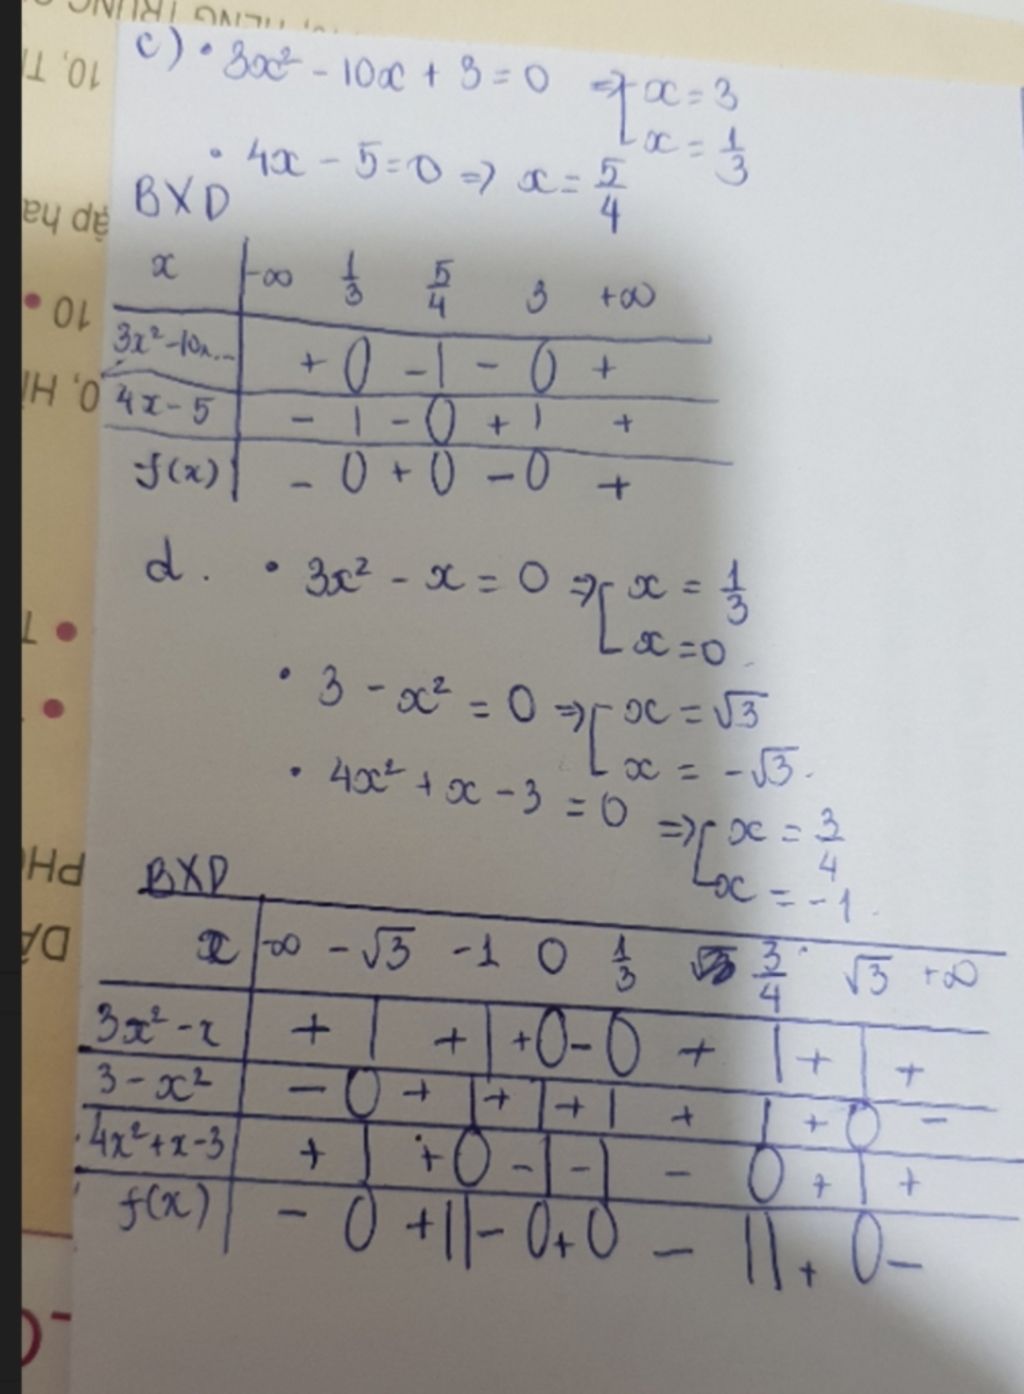 c) • 3x² - 10x + 3 = 0 ⇒ [ x = 3
x = 1/3
• 4x - 5 = 0 ⇒ x = 5/4
BXD
x | -∞ 1/3 5/4 3 +∞
3x² - 10x... | + 0 - | - 0 +
4x - 5 | - | - 0 + | +
f(x) | - 0 + 0 - 0 +
d. • 3x² - x = 0 ⇒ [ x = 1/3
x = 0.
• 3 - x² = 0 ⇒ [ x = √3
x = -√3.
• 4x² + x - 3 = 0 ⇒ [ x = 3/4
x = -1.
BXD
x | -∞ -√3 -1 0 1/3 3/4 √3 +∞
3x² - x | + | + | + 0 - 0 + | + | +
3 - x² | - 0 + | + | + | + | + 0 -
4x² + x - 3 | + | + 0 - | - | - 0 + | +
f(x) | - 0 + || - 0 + 0 - || + 0 -
10, T
ập ha
10
0, HÌ
PH